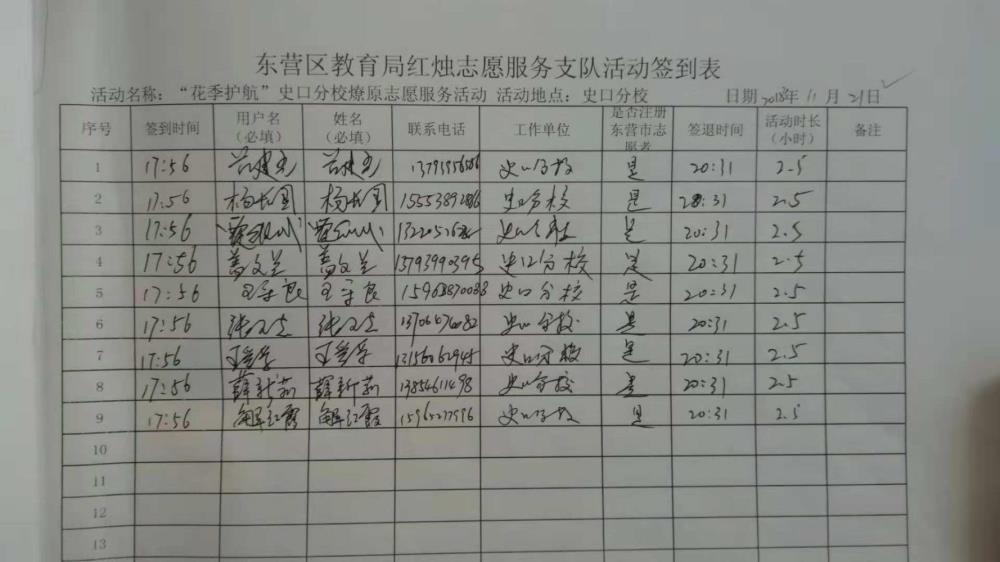 东营区教育局红烛志愿服务支队活动签到表
活动名称：“花季护航”史口分校燎原志愿服务活动 活动地点：史口分校 日期2018年11月21日
序号 签到时间 用户名（必填） 姓名（必填） 联系电话 工作单位 是否注册东营市志愿者 签退时间 活动时长（小时） 备注
1 17:56 史口分校 是 20:31 2.5
2 17:56 杨长国 杨长国 史口分校 是 20:31 2.5
3 17:56 史口分校 是 20:31 2.5
4 17:56 葛文兰 葛文兰 13793990395 史口分校 是 20:31 2.5
5 17:56 王守良 王守良 史口分校 是 20:31 2.5
6 17:56 史口分校 是 20:31 2.5
7 17:56 13156062945 史口分校 是 20:31 2.5
8 17:56 薛新莉 薛新莉 13854611498 史口分校 是 20:31 2.5
9 17:56 解红霞 解红霞 史口分校 是 20:31 2.5
10
11
12
13